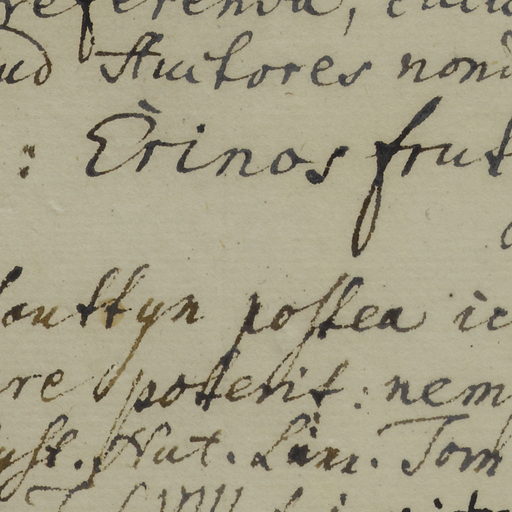 referenda,
ud Auctores nond
: Erinos frut
lauttyn postea ic
re poterit: nem
yst. Nat. Linn. Tom